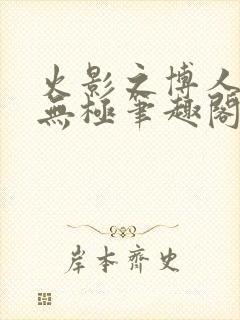 火影之博人
無極筆趣閣
岸本齊史